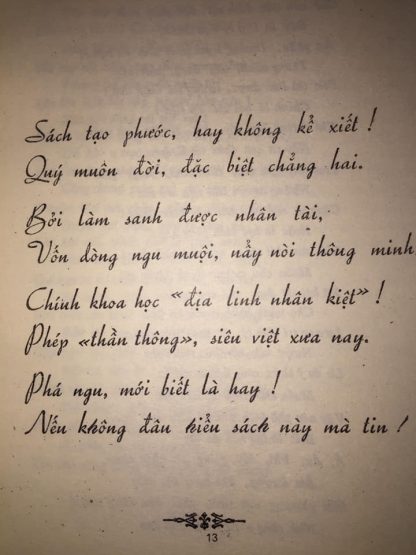 Sách tạo phước, hay không kể xiết !
Quý muôn đời, đặc biệt chẳng hai.
Bởi làm sanh được nhân tài,
Vốn dòng ngu muội, nẩy nòi thông minh
Chính khoa học «địa linh nhân kiệt» !
Phép «thần thông», siêu việt xưa nay.
Phá ngu, mới biết là hay !
Nếu không đâu hiểu sách này mà tin !
13